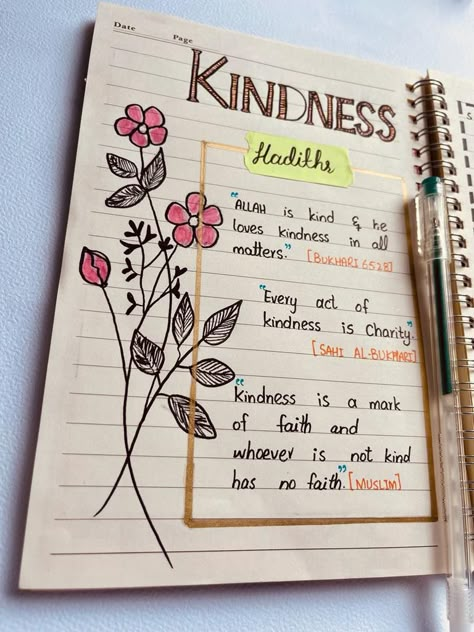 Date
Page
KINDNESS
Hadiths
"ALLAH is kind & he
loves kindness in all
matters." [BUKHARI 6528]
"Every act of
kindness is Charity"
[SAHI AL-BUKHARI]
"Kindness is a mark
of faith and
whoever is not kind
has no faith." [MUSLIM]